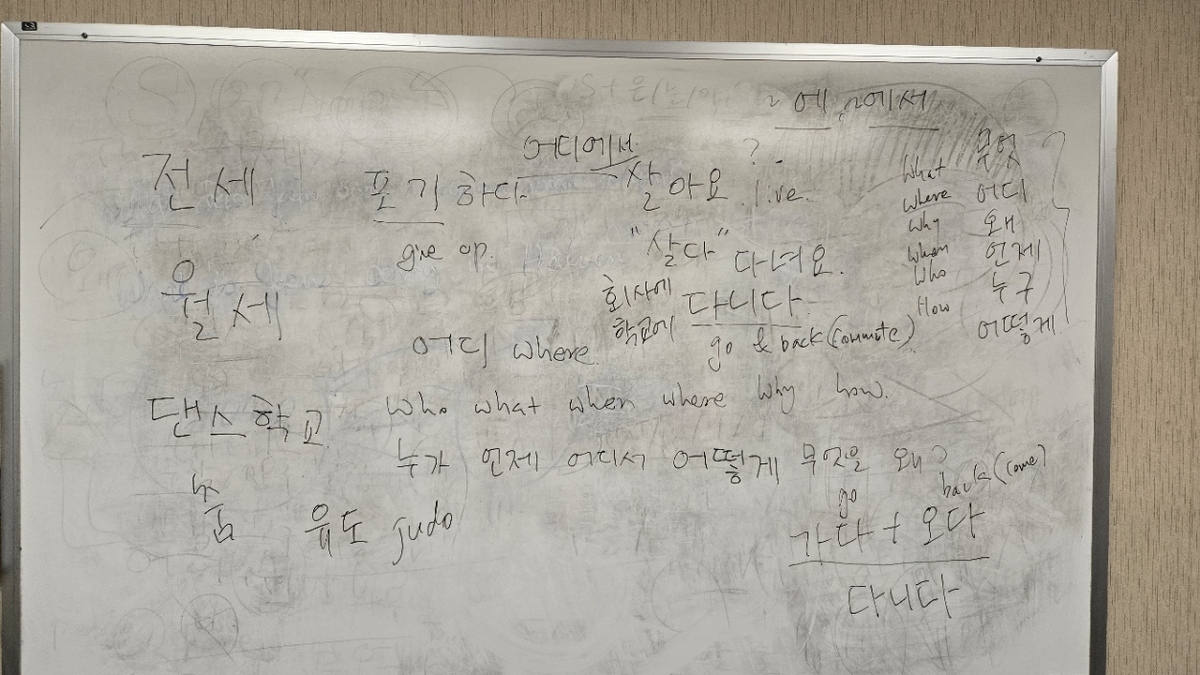 ~에, ~에서
어디에서 ?
전세 포기하다 살아요 live.
give up. "살다" 다녀요.
월세 회사에 다니다
학교에 go & back (commute)
어디 where.
what 무엇
where 어디
why 왜
when 언제
who 누구
How 어떻게
댄스학교 who what when where why how.
누가 언제 어디서 어떻게 무엇을 왜?
춤 유도 judo
go back (come)
가다 + 오다
다니다